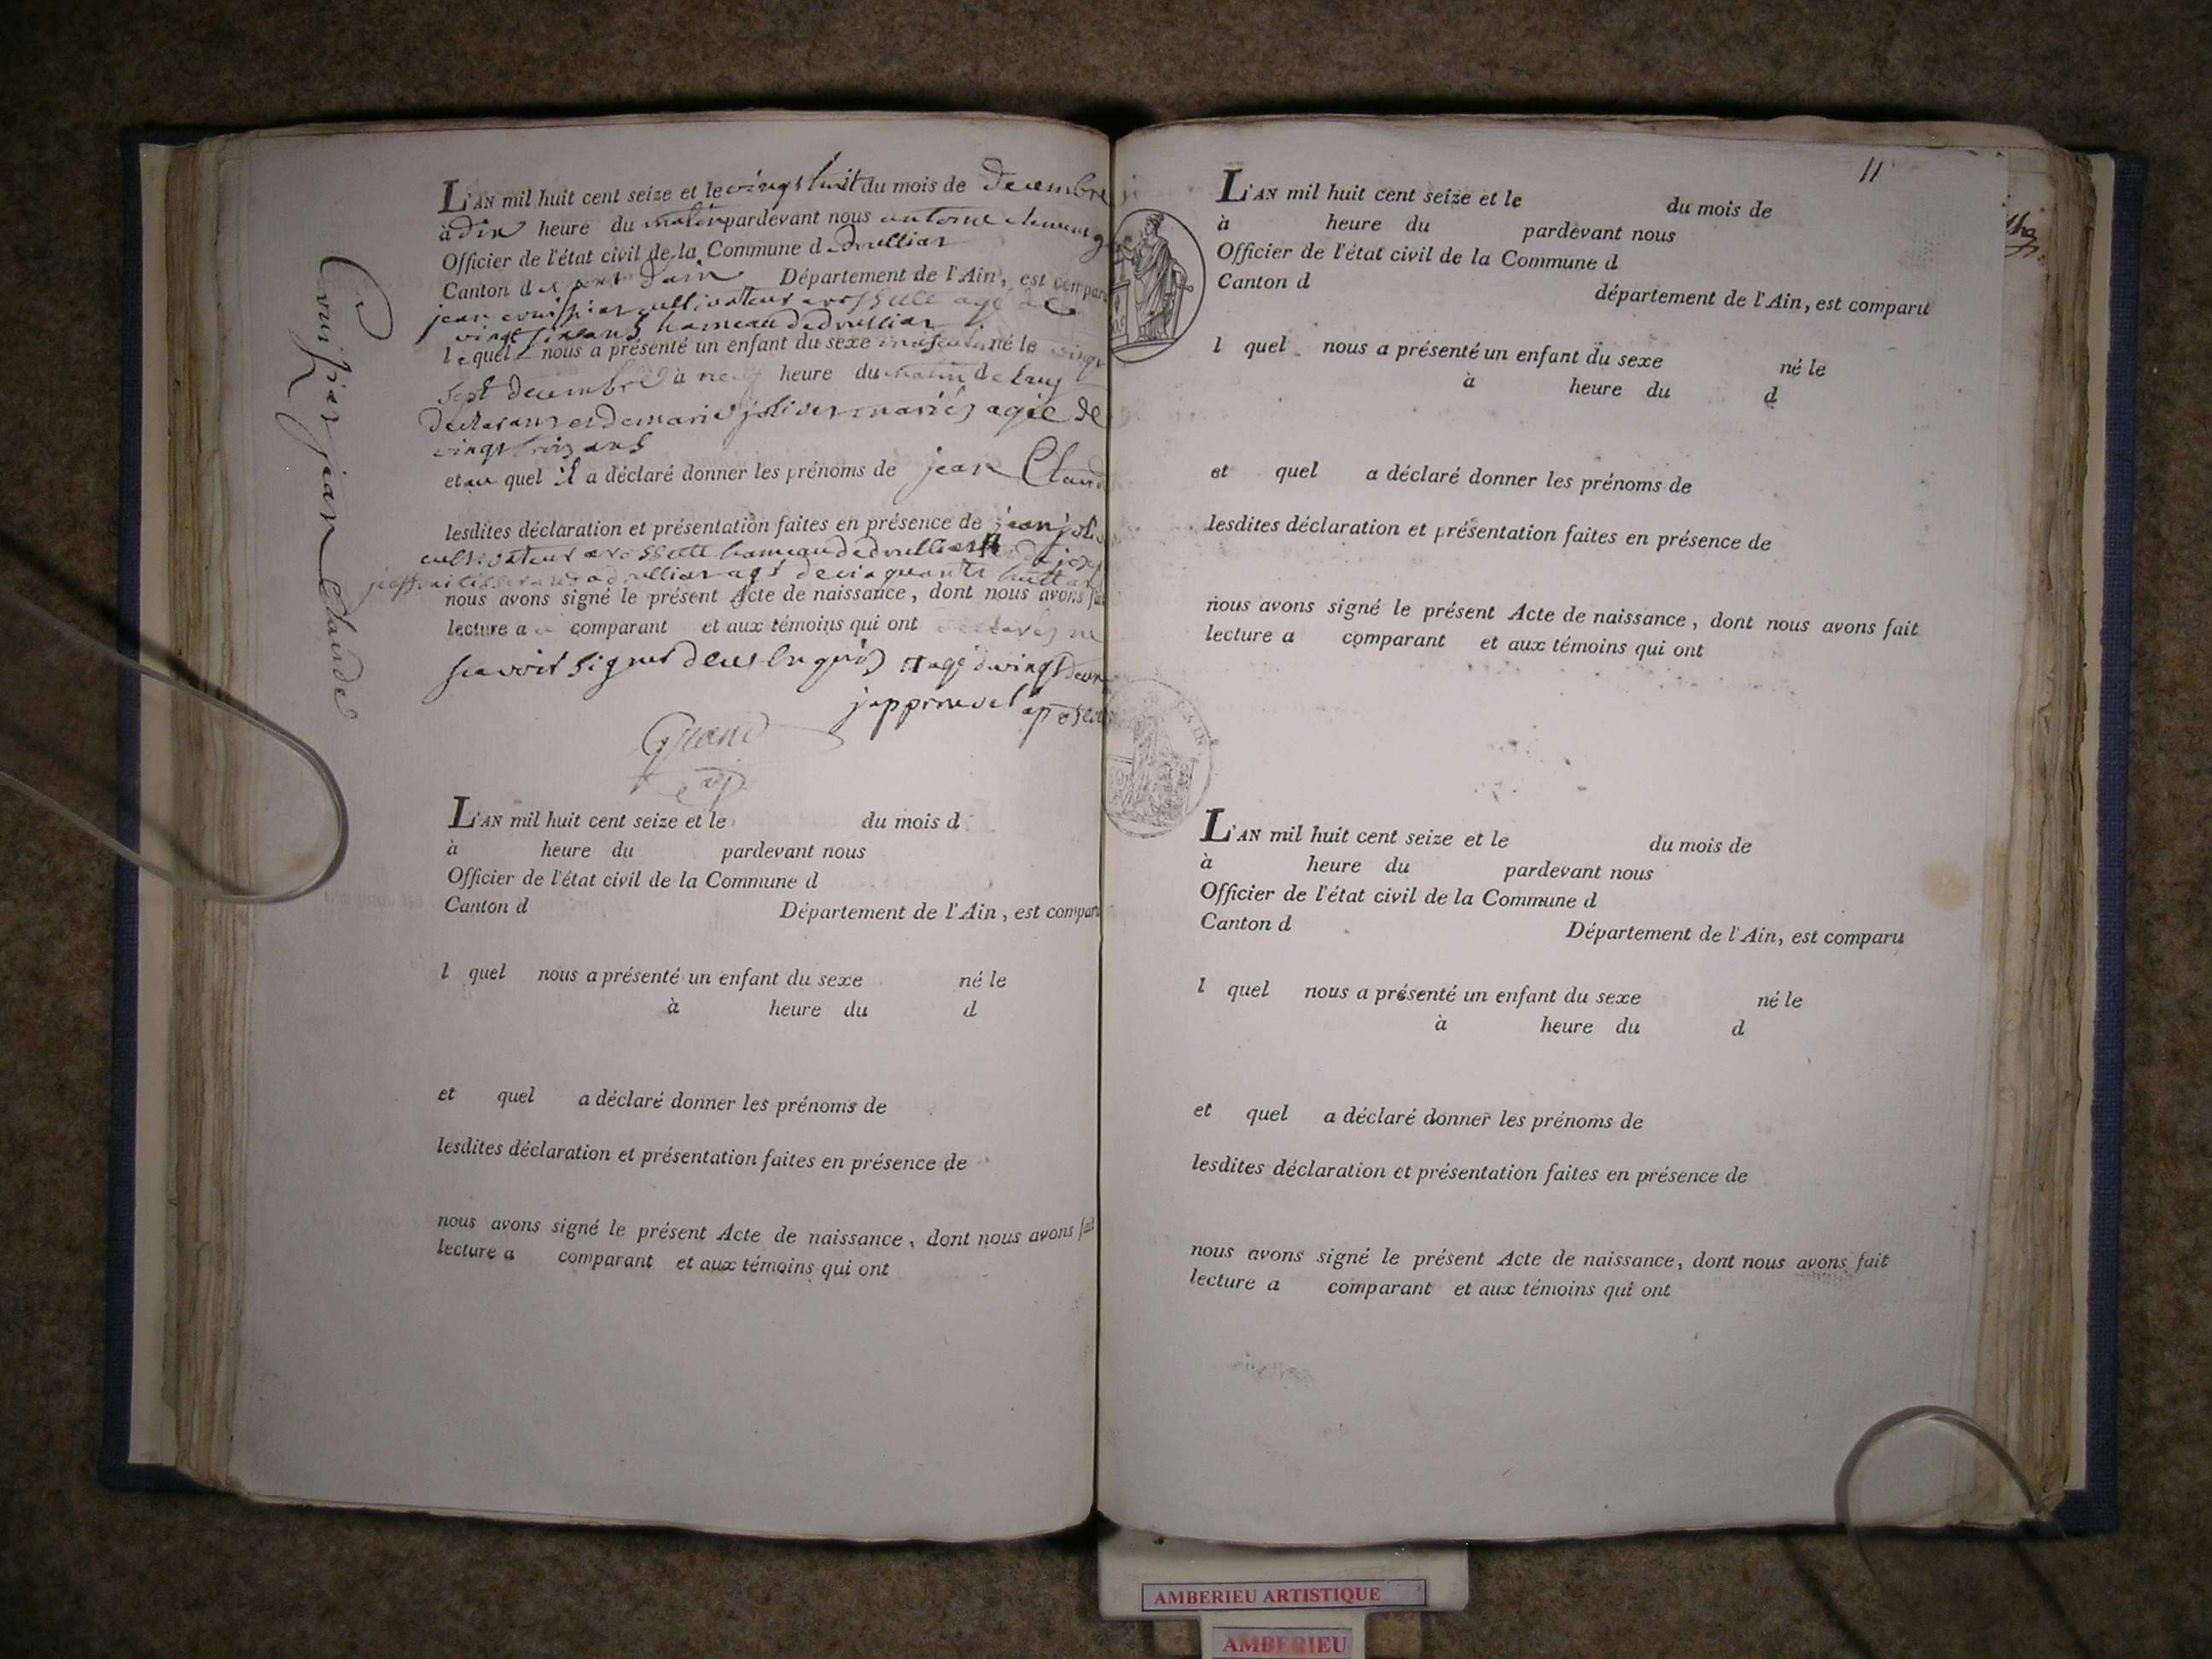 L'AN mil huit cent seize et le vingt huit du mois de decembre
à dix heure du matin pardevant nous antoine
Officier de l'état civil de la Commune d druilliat
Canton de pont dain Département de l'Ain, est compar
jean cultivateur a rossette agé de
vingt ans hameau de druilliat
lequel nous a présenté un enfant du sexe masculin né le vingt
sept decembre à neuf heure du matin de luy
declarant et de marie jolivet mariés agée de
vingt trois ans
et au quel il a déclaré donner les prénoms de jean Claud
lesdites déclaration et présentation faites en présence de jean
cultivateur a rossette hameau de druilliat
a druilliat agé de cinquante huit
nous avons signé le présent Acte de naissance, dont nous avons fai
lecture a comparant et aux témoins qui ont ne
scavoir signer de ce enquis agé de vingt deux
japprouve l'apostil
Grand
adj
jean Claude
L'AN mil huit cent seize et le du mois d
à heure du pardevant nous
Officier de l'état civil de la Commune d
Canton d Département de l'Ain, est compar
l quel nous a présenté un enfant du sexe né le
à heure du d
et quel a déclaré donner les prénoms de
lesdites déclaration et présentation faites en présence de
nous avons signé le présent Acte de naissance, dont nous avons fait
lecture a comparant et aux témoins qui ont
11
L'AN mil huit cent seize et le du mois de
à heure du pardevant nous
Officier de l'état civil de la Commune d
Canton d département de l'Ain, est comparu
l quel nous a présenté un enfant du sexe né le
à heure du d
et quel a déclaré donner les prénoms de
lesdites déclaration et présentation faites en présence de
nous avons signé le présent Acte de naissance, dont nous avons fait
lecture a comparant et aux témoins qui ont
L'AN mil huit cent seize et le du mois de
à heure du pardevant nous
Officier de l'état civil de la Commune d
Canton d Département de l'Ain, est comparu
l quel nous a présenté un enfant du sexe né le
à heure du d
et quel a déclaré donner les prénoms de
lesdites déclaration et présentation faites en présence de
nous avons signé le présent Acte de naissance, dont nous avons fait
lecture a comparant et aux témoins qui ont
AMBERIEU ARTISTIQUE
AMBERIEU